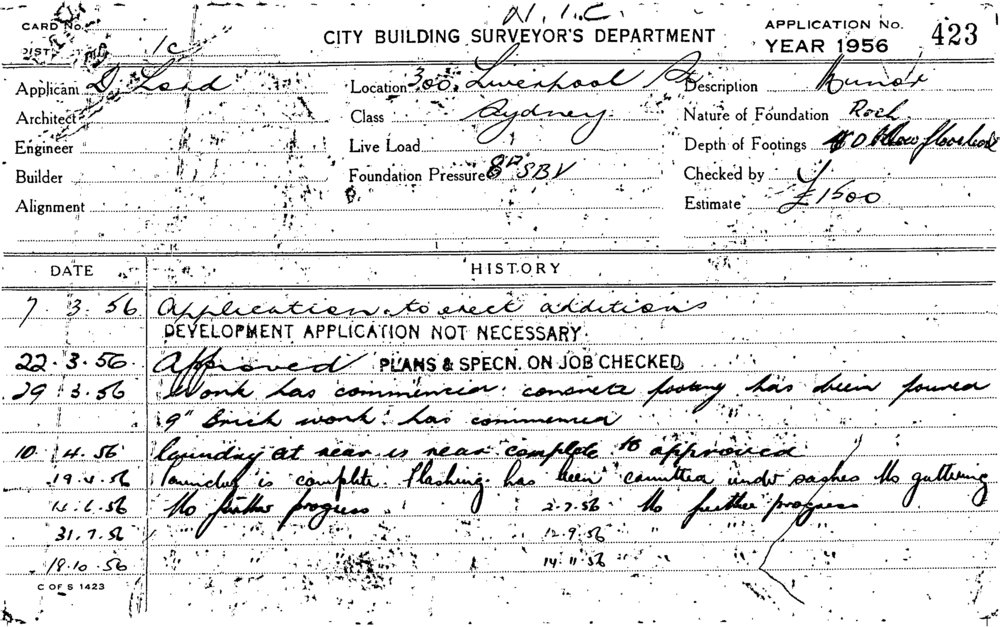 N.I.C.
CARD No.
DIST. 1c
CITY BUILDING SURVEYOR'S DEPARTMENT
APPLICATION No. 423
YEAR 1956
Applicant D. Lord Location 300. Liverpool St Description Minor
Architect Class Sydney Nature of Foundation Rock
Engineer Live Load Depth of Footings
Builder Foundation Pressure 8" SBV Checked by
Alignment Estimate £1500
DATE HISTORY
7 3. 56 Application to erect additions
DEVELOPMENT APPLICATION NOT NECESSARY.
22. 3. 56. Approved PLANS & SPECN. ON JOB CHECKED
29 3. 56 Work has commenced concrete footing has been poured
9" Brick work has commenced
10. 4. 56 laundry at rear is near complete to approved
19.4.56 laundry is complete. Flashing has been committed under sashes No guttering
14.6.56 No further progress 2.7.56 No further progress
31.7.56 " " " 12.9.56 " " "
19.10.56 " " " 14.11.56
C OF S 1423